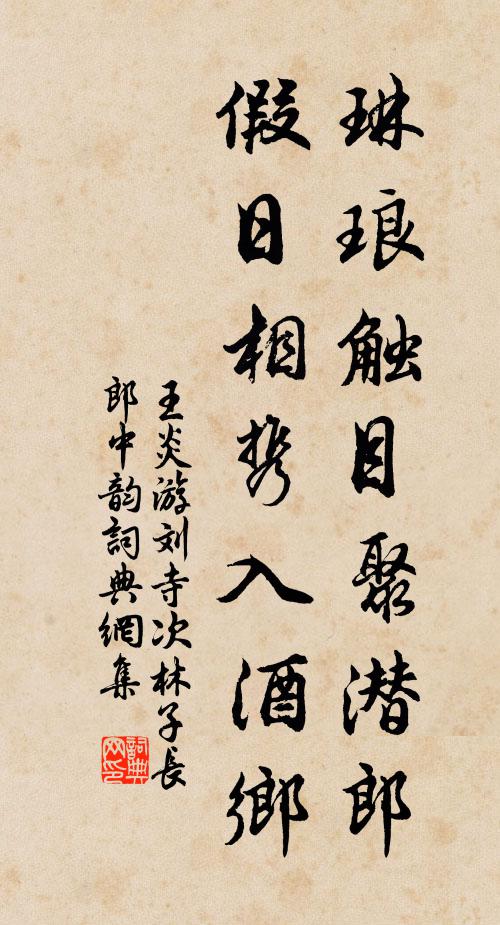 琳琅触目聚潜郎
假日相携入酒鄉
王炎游刘寺次林子長
郎中韵詞典網集
詞典网印